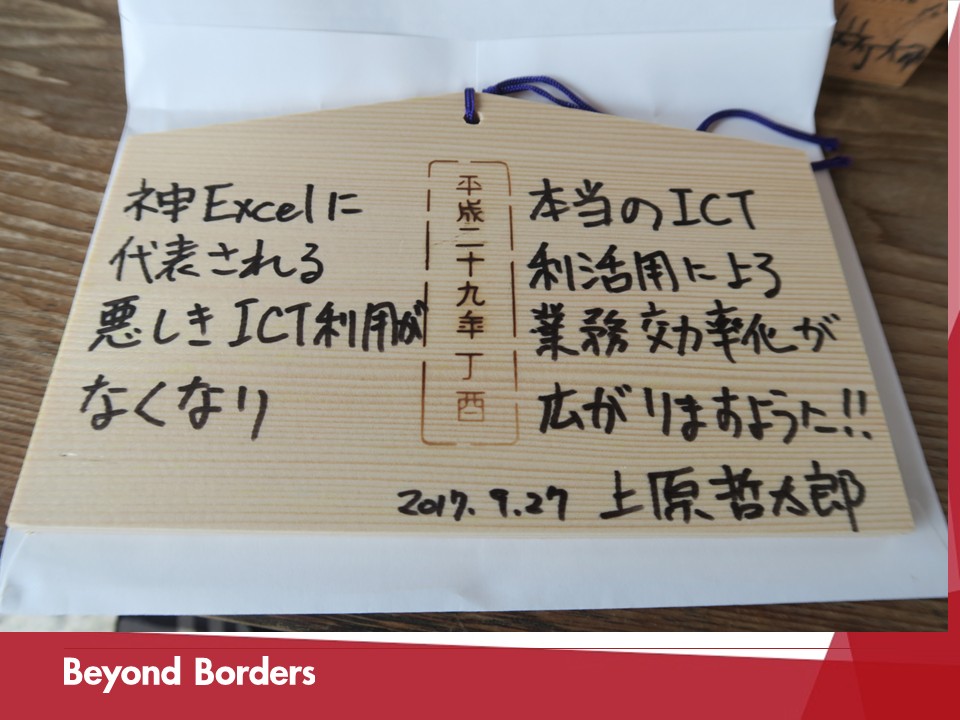 神Excelに
代表される
悪しきICT利用が
なくなり
平成二十九年丁酉
本当のICT
利活用による
業務効率化が
広がりますように!!
2017.9.27 上原哲太郎
Beyond Borders